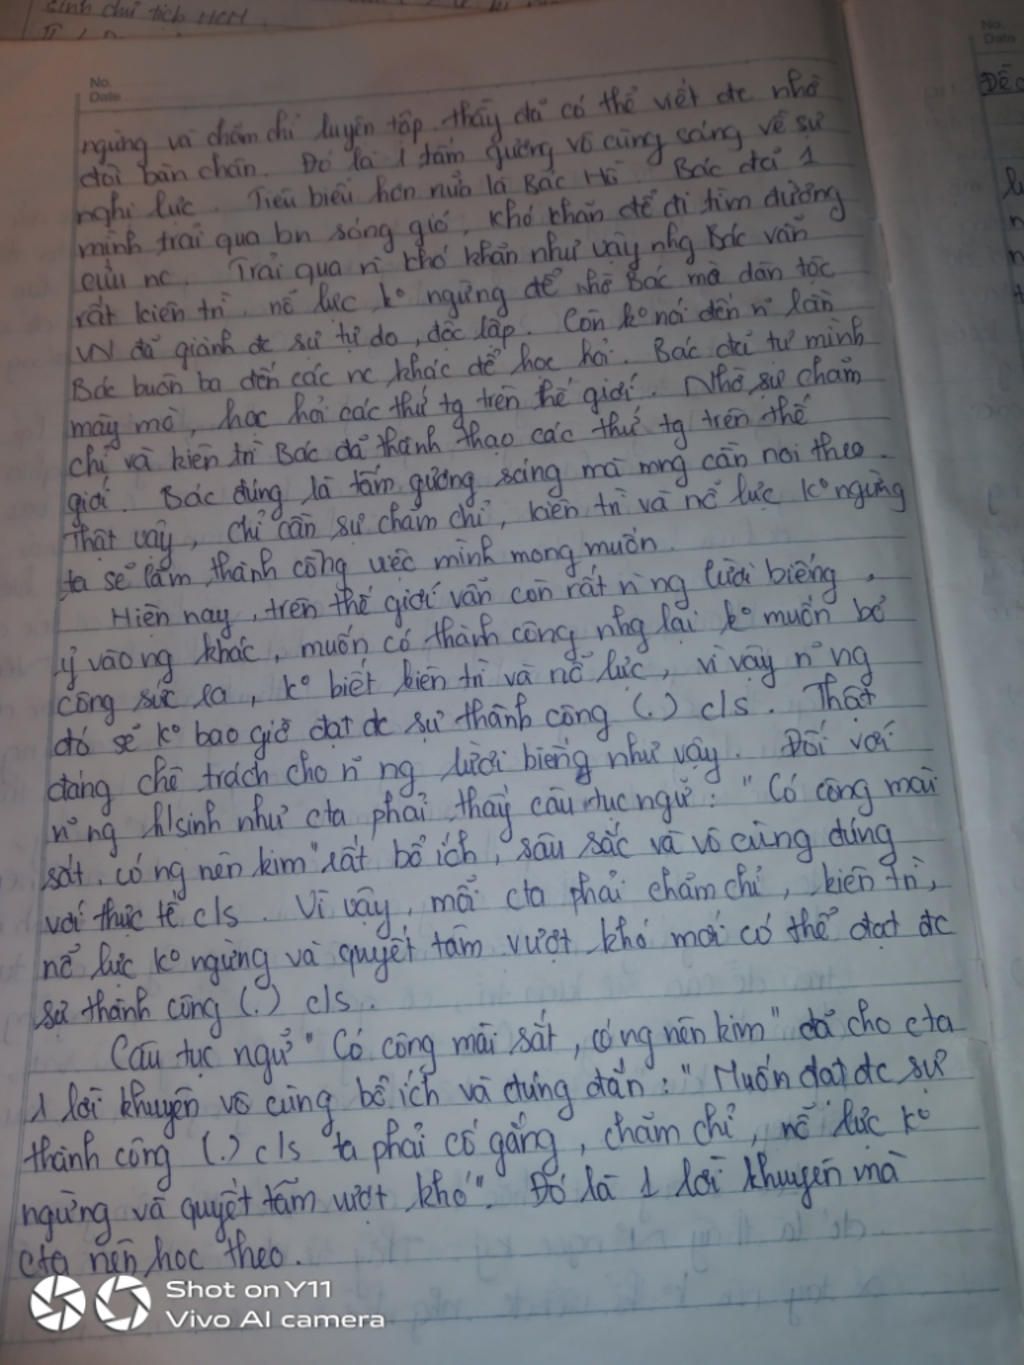 sinh chủ tịch HCM
No.
Date
ngừng và chăm chỉ luyện tập. thầy đã có thể viết đc nhờ
đôi bàn chân. Đó là 1 tấm gương vô cùng sáng về sự
nghị lực. Tiêu biểu hơn nữa là Bác Hồ. Bác đã 1
mình trải qua bn sóng gió, khó khăn để đi tìm đường
cứu nc. Trải qua n~ khó khăn như vậy nhg Bác vẫn
rất kiên trì, nỗ lực k° ngừng để nhờ Bác mà dân tộc
VN đã giành đc sự tự do, độc lập. Còn k° nói đến n~ lần
Bác buôn ba đến các nc khác để học hỏi. Bác đã tự mình
mày mò, học hỏi các thứ tg trên thế giới. Nhờ sự chăm
chỉ và kiên trì Bác đã thành thạo các thứ tg trên thế
giới. Bác đúng là tấm gương sáng mà mng cần noi theo.
Thật vậy, chỉ cần sự chăm chỉ, kiên trì và nỗ lực k° ngừng
ta sẽ làm thành công việc mình mong muốn.
Hiện nay, trên thế giới vẫn còn rất n~ ng lười biếng,
ỷ vào ng khác, muốn có thành công nhg lại k° muốn bỏ
công sức ra, k° biết kiên trì và nỗ lực, vì vậy n~ ng
đó sẽ k° bao giờ đạt đc sự thành công (.) c/s. Thật
đáng chê trách cho n~ ng lười biếng như vậy. Đối với
n~ ng h/sinh như cta phải thấy câu tục ngữ: "Có công mài
sắt, có ng nên kim" rất bổ ích, sâu sắc và vô cùng đúng
với thực tế c/s. Vì vậy, mỗi cta phải chăm chỉ, kiên trì,
nỗ lực k° ngừng và quyết tâm vượt khó mới có thể đạt đc
sự thành công (.) c/s.
Câu tục ngữ "Có công mài sắt, có ng nên kim" đã cho cta
1 lời khuyên vô cùng bổ ích và đúng đắn: "Muốn đạt đc sự
thành công (.) c/s ta phải cố gắng, chăm chỉ, nỗ lực k°
ngừng và quyết tâm vượt khó". Đó là 1 lời khuyên mà
cta nên học theo.
No.
Date
Shot on Y11
Vivo AI camera